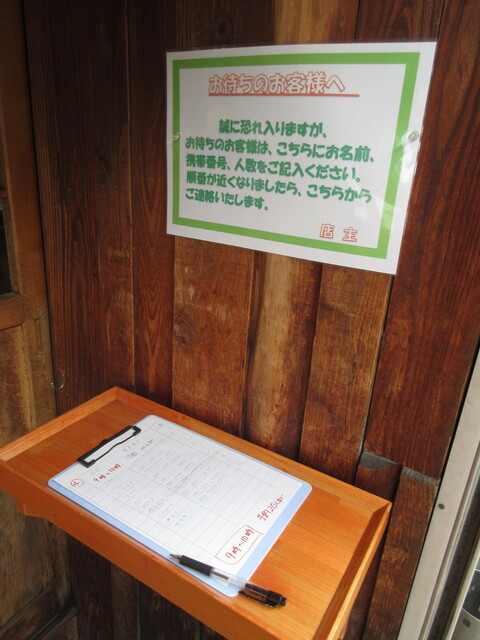 お待ちのお客様へ
誠に恐れ入りますが、
お待ちのお客様は、こちらにお名前、
携帯番号、人数をご記入ください。
順番が近くなりましたら、こちらから
ご連絡いたします。
店主
9時〜10時
9時〜10時